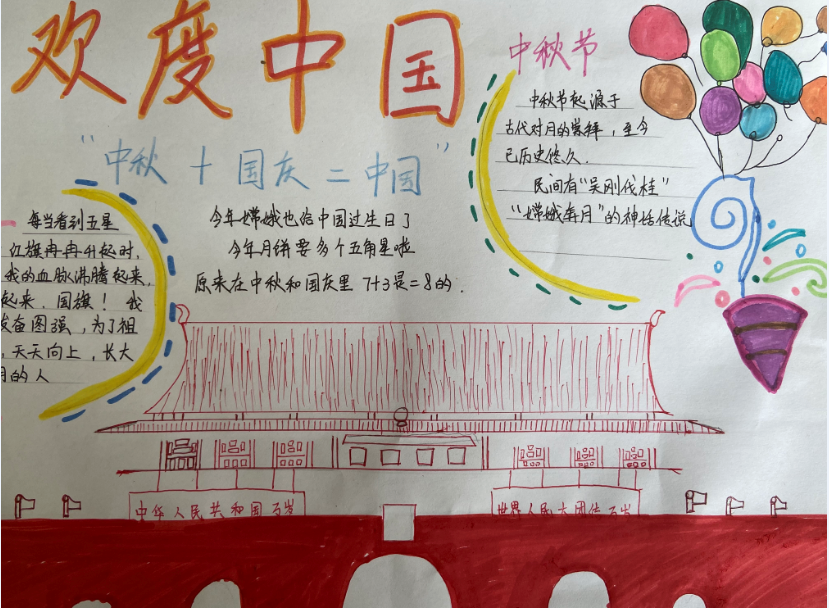 欢度中国
"中秋十国庆二中国"
中秋节
中秋节起源于
古代对月的崇拜，至今
已历史悠久.
民间有"吴刚伐桂"
"嫦娥奔月"的神话传说
每当看到五星
红旗冉冉升起时,
我的血脉沸腾起来,
起来，国旗！我
发奋图强，为了祖
，天天向上，长大
用的人
今年嫦娥也给中国过生日了
今年月饼要多个五角星啦
原来在中秋和国庆里 7+3是=8的.
中华人民共和国万岁
世界人民大团结万岁